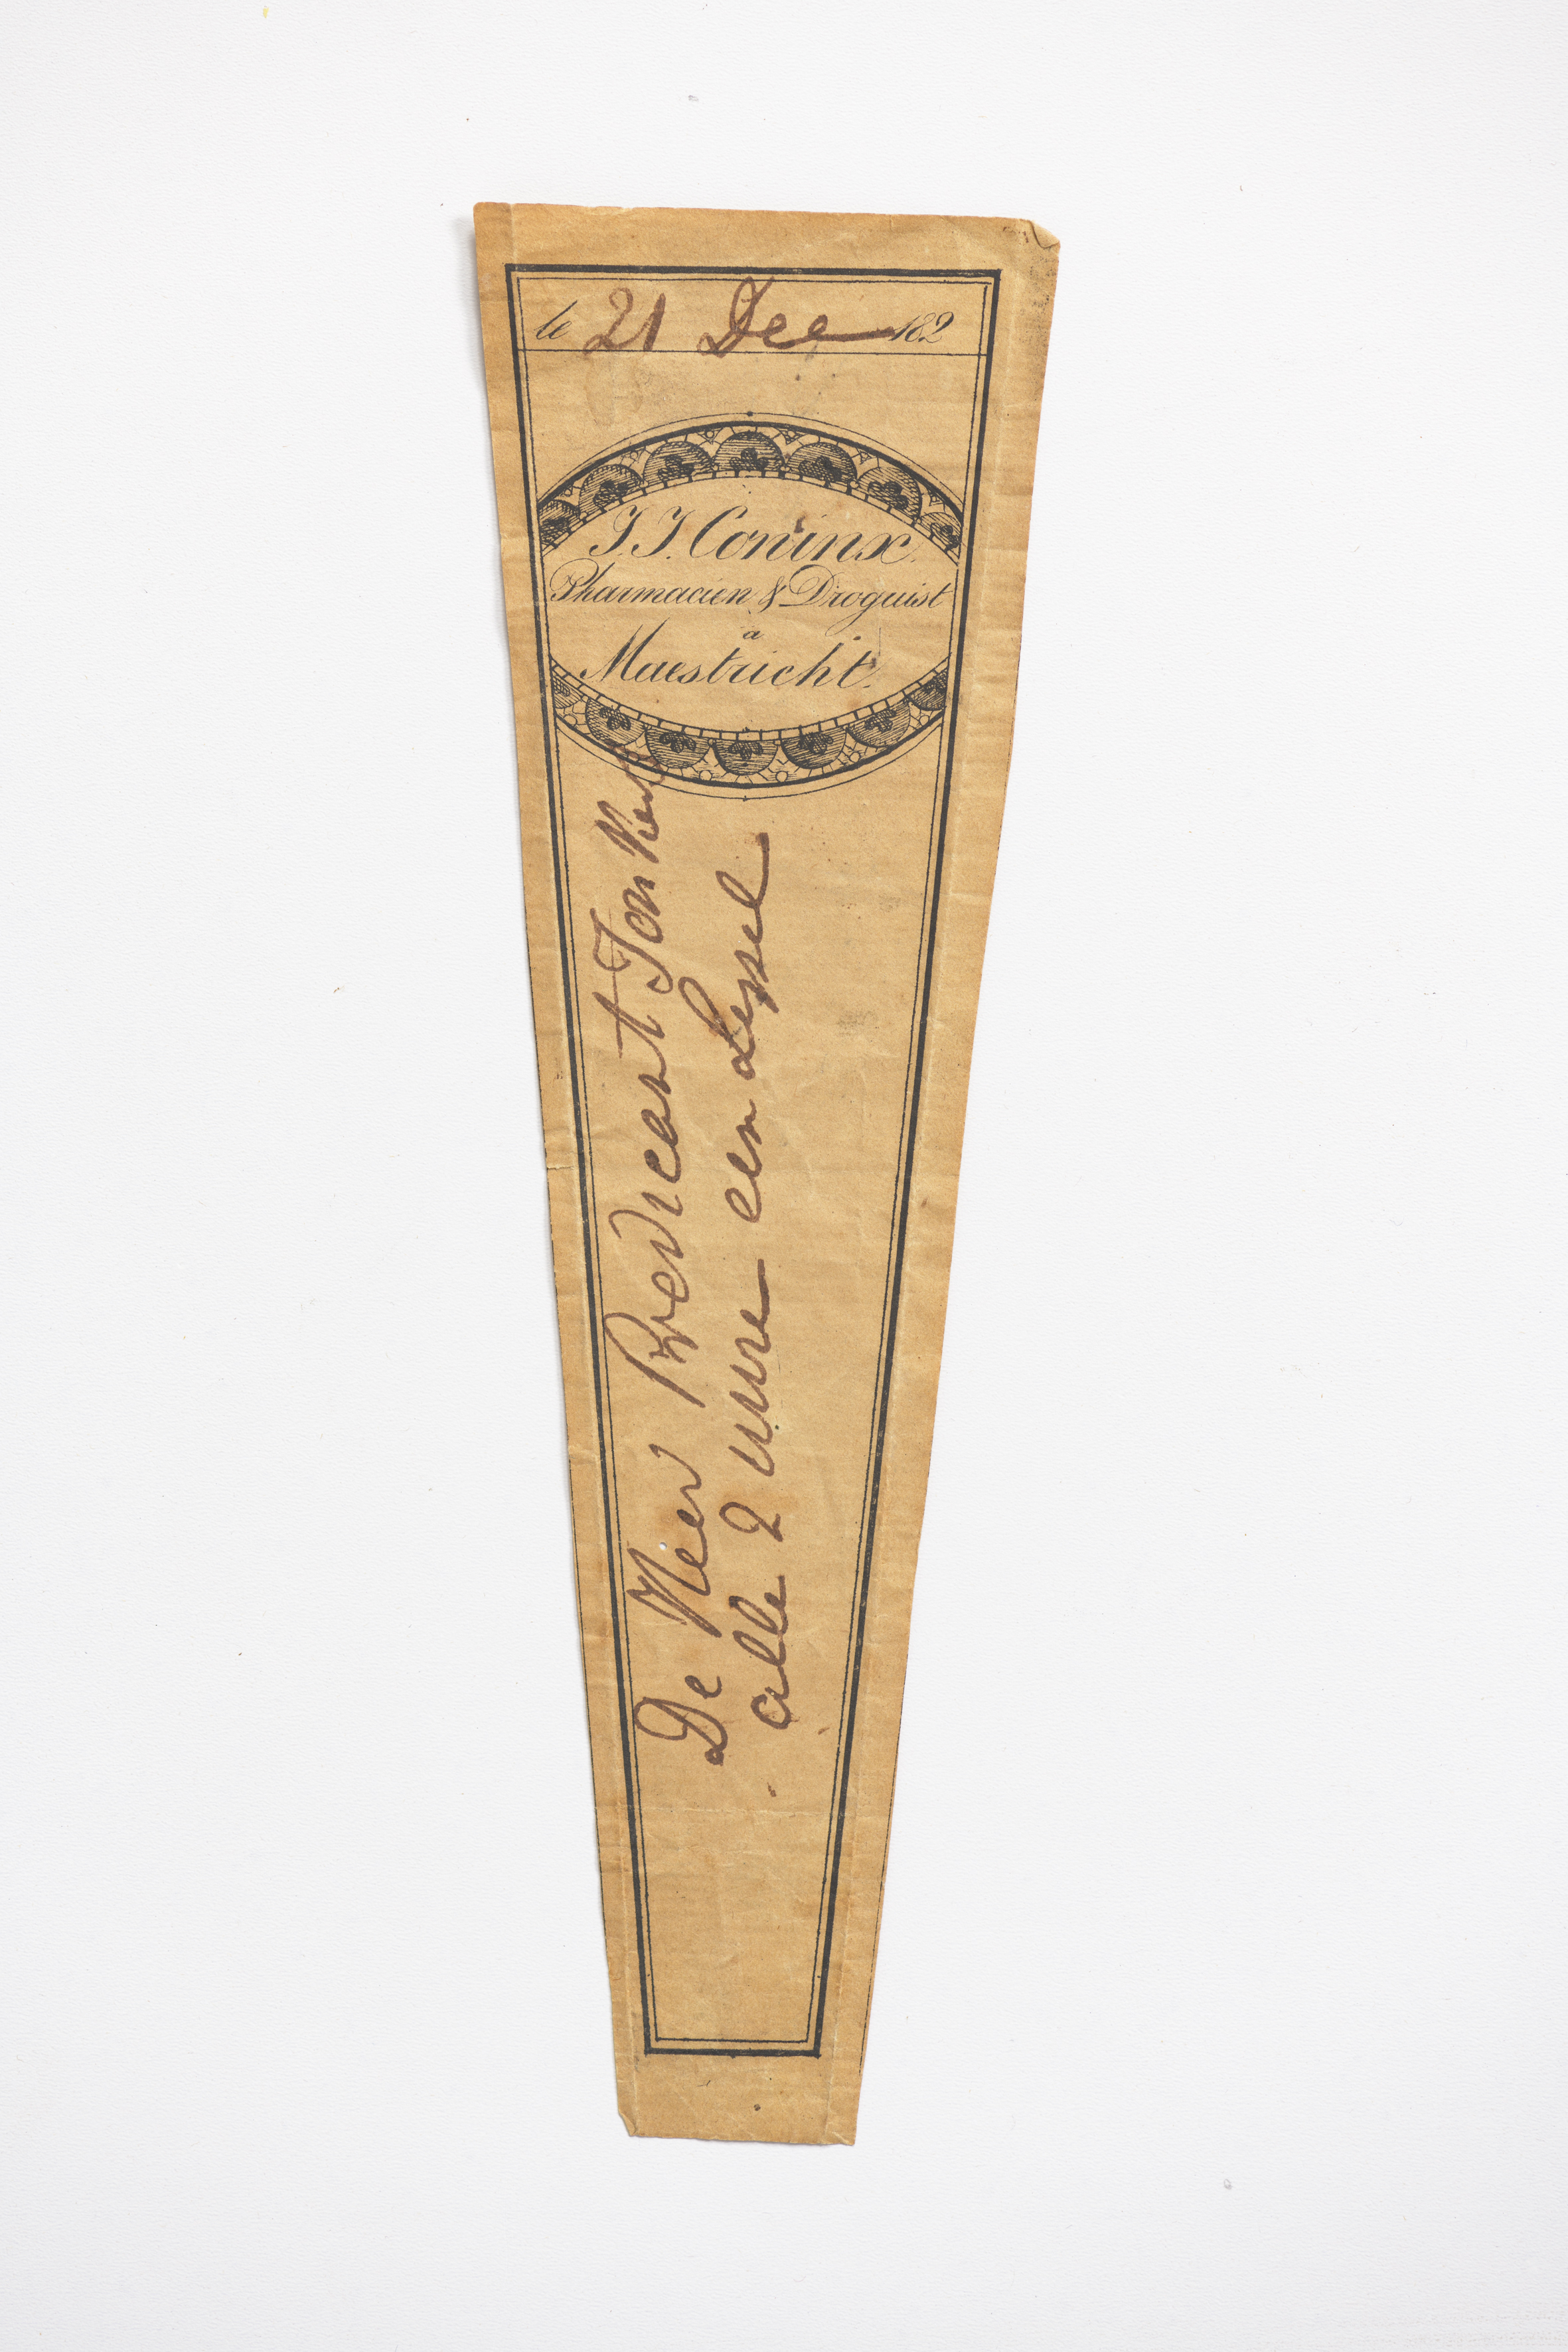 le 21 Dec 182
J. J. Coninx.
Pharmacien & Droguist
a
Maestricht.
De Heer Predicant Jonker
alle 2 uure een Lepel